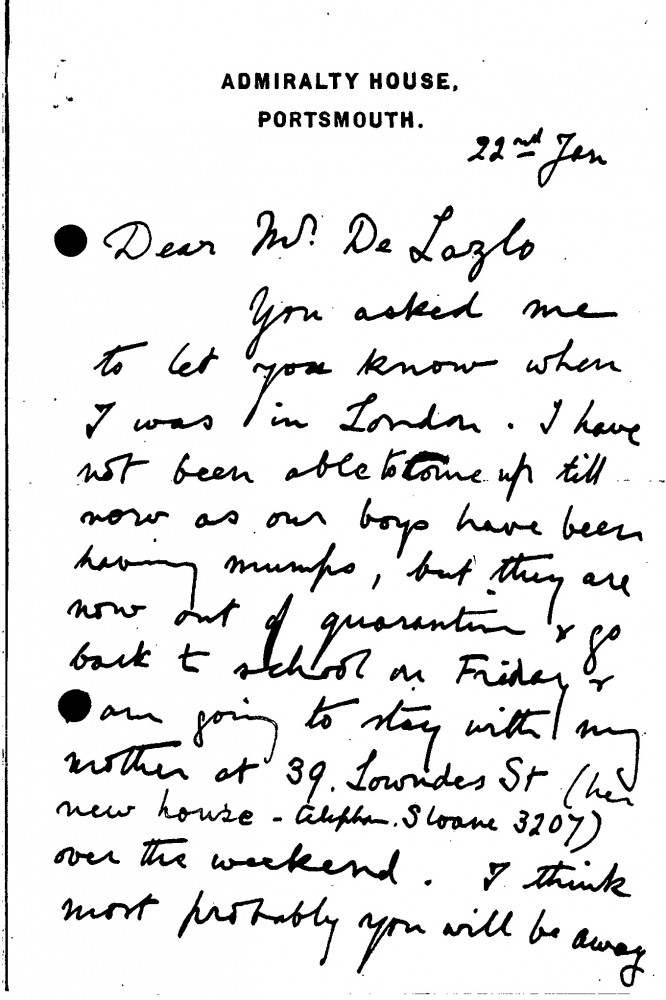 ADMIRALTY HOUSE,
PORTSMOUTH.
22nd Jan
Dear Mr. De Lazlo
You asked me
to let you know when
I was in London. I have
not been able to come up till
now as our boys have been
having mumps, but they are
now out of quarantine & go
back to school on Friday &
am going to stay with my
mother at 39. Lowndes St (her
new house - telephone. Sloane 3207)
over the weekend. I think
most probably you will be away